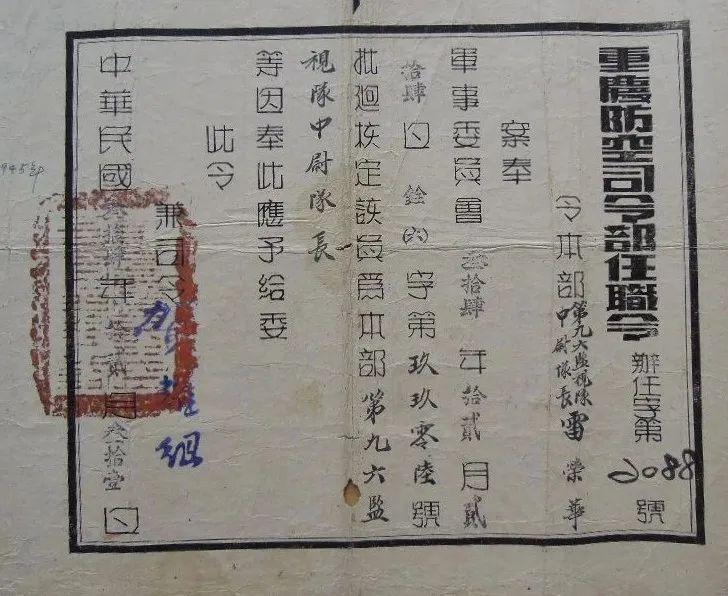 重慶防空司令部任職令
辦任字第2088號
令本部第九六監視隊中尉隊長雷榮華
案奉
軍事委員會叁拾肆年拾貳月貳
拾肆日銓字第玖玖零陸號
批迴核定該員為本部第九六監
視隊中尉隊長
等因奉此應予給委
此令
兼司令賀耀組
中華民國叁拾肆年拾貳月叁拾壹日